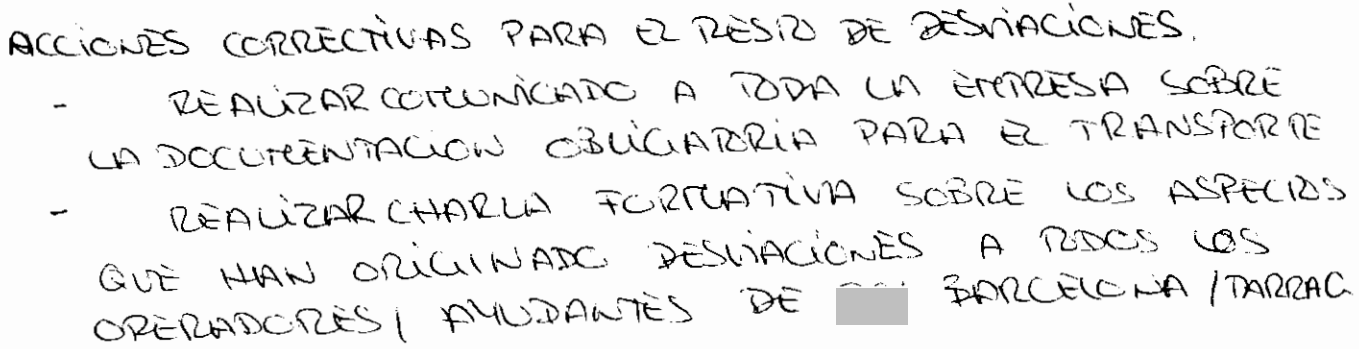 ACCIONES CORRECTIVAS PARA EL RESTO DE DESVIACIONES.
- REALIZAR COMUNICADO A TODA LA EMPRESA SOBRE
LA DOCUMENTACION OBLIGATORIA PARA EL TRANSPORTE
- REALIZAR CHARLA FORMATIVA SOBRE LOS ASPECTOS
QUE HAN ORIGINADO DESVIACIONES A TODOS LOS
OPERADORES/ AYUDANTES DE BARCELONA / TARRAG